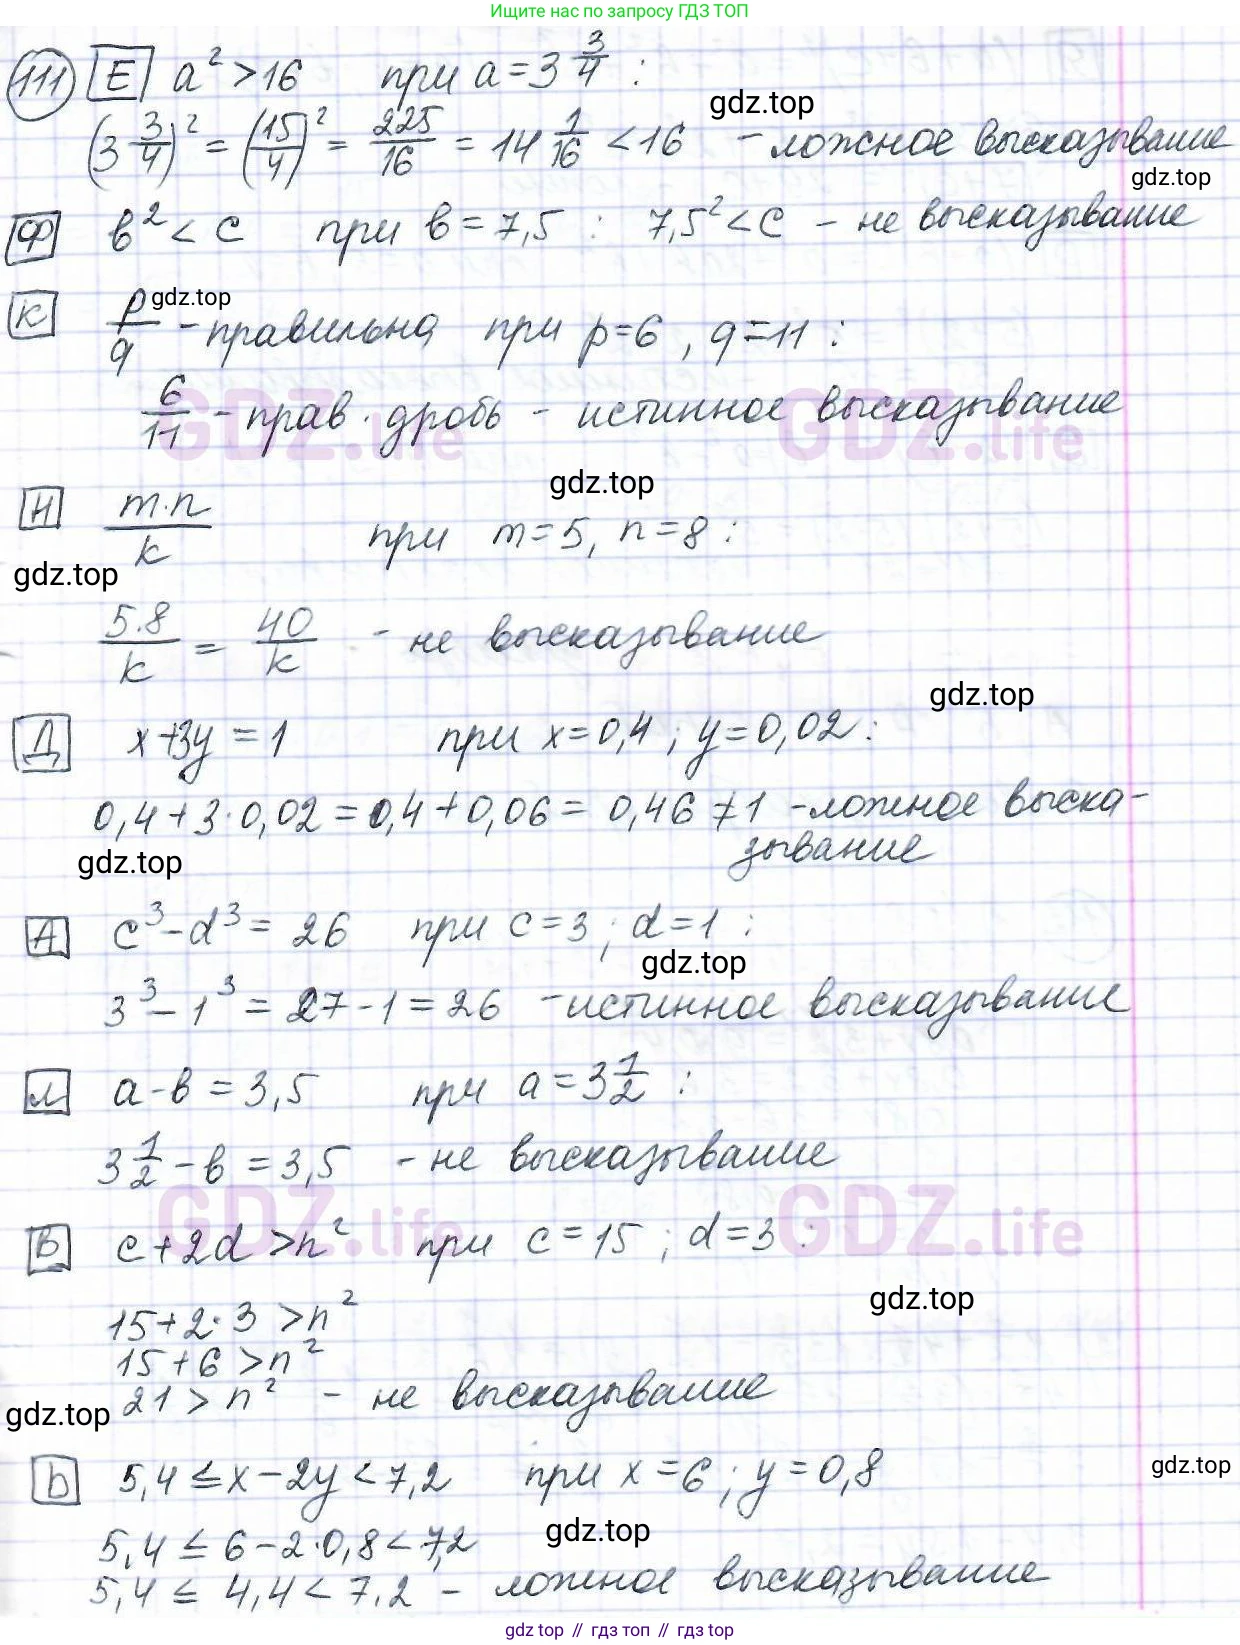 Ищите нас по запросу ГДЗ ТОП
111 Е a² > 16 при a = 3 3/4 :
gdz.top
(3 3/4)² = (15/4)² = 225/16 = 14 1/16 < 16 - ложное высказывание
gdz.top
Ф b² < c при b = 7,5 : 7,5² < c - не высказывание
К gdz.top
p/q - правильна при p=6, q=11 :
6/11 - прав. дробь - истинное высказывание
GDZ.life GDZ.life
gdz.top
Н m·n/k при m=5, n=8 :
gdz.top
5·8/k = 40/k - не высказывание
gdz.top
Д x+3y = 1 при x=0,4 ; y=0,02 :
0,4+3·0,02 = 0,4+0,06 = 0,46 ≠ 1 - ложное выска-
зывание
gdz.top
А c³-d³ = 26 при c=3 ; d=1 :
gdz.top
3³-1³ = 27-1 = 26 - истинное высказывание
Л a-b = 3,5 при a = 3 1/2 :
3 1/2 - b = 3,5 - не высказывание
GDZ.life GDZ.life
В c+2d > n² при c=15 ; d=3 :
gdz.top
15+2·3 > n²
15+6 > n²
21 > n² - не высказывание
gdz.top
Ь 5,4 ≤ x-2y < 7,2 при x=6 ; y=0,8
gdz.top
gdz.top
5,4 ≤ 6-2·0,8 < 7,2
5,4 ≤ 4,4 < 7,2 - ложное высказывание
gdz.top // гдз топ // gdz top // гдз top